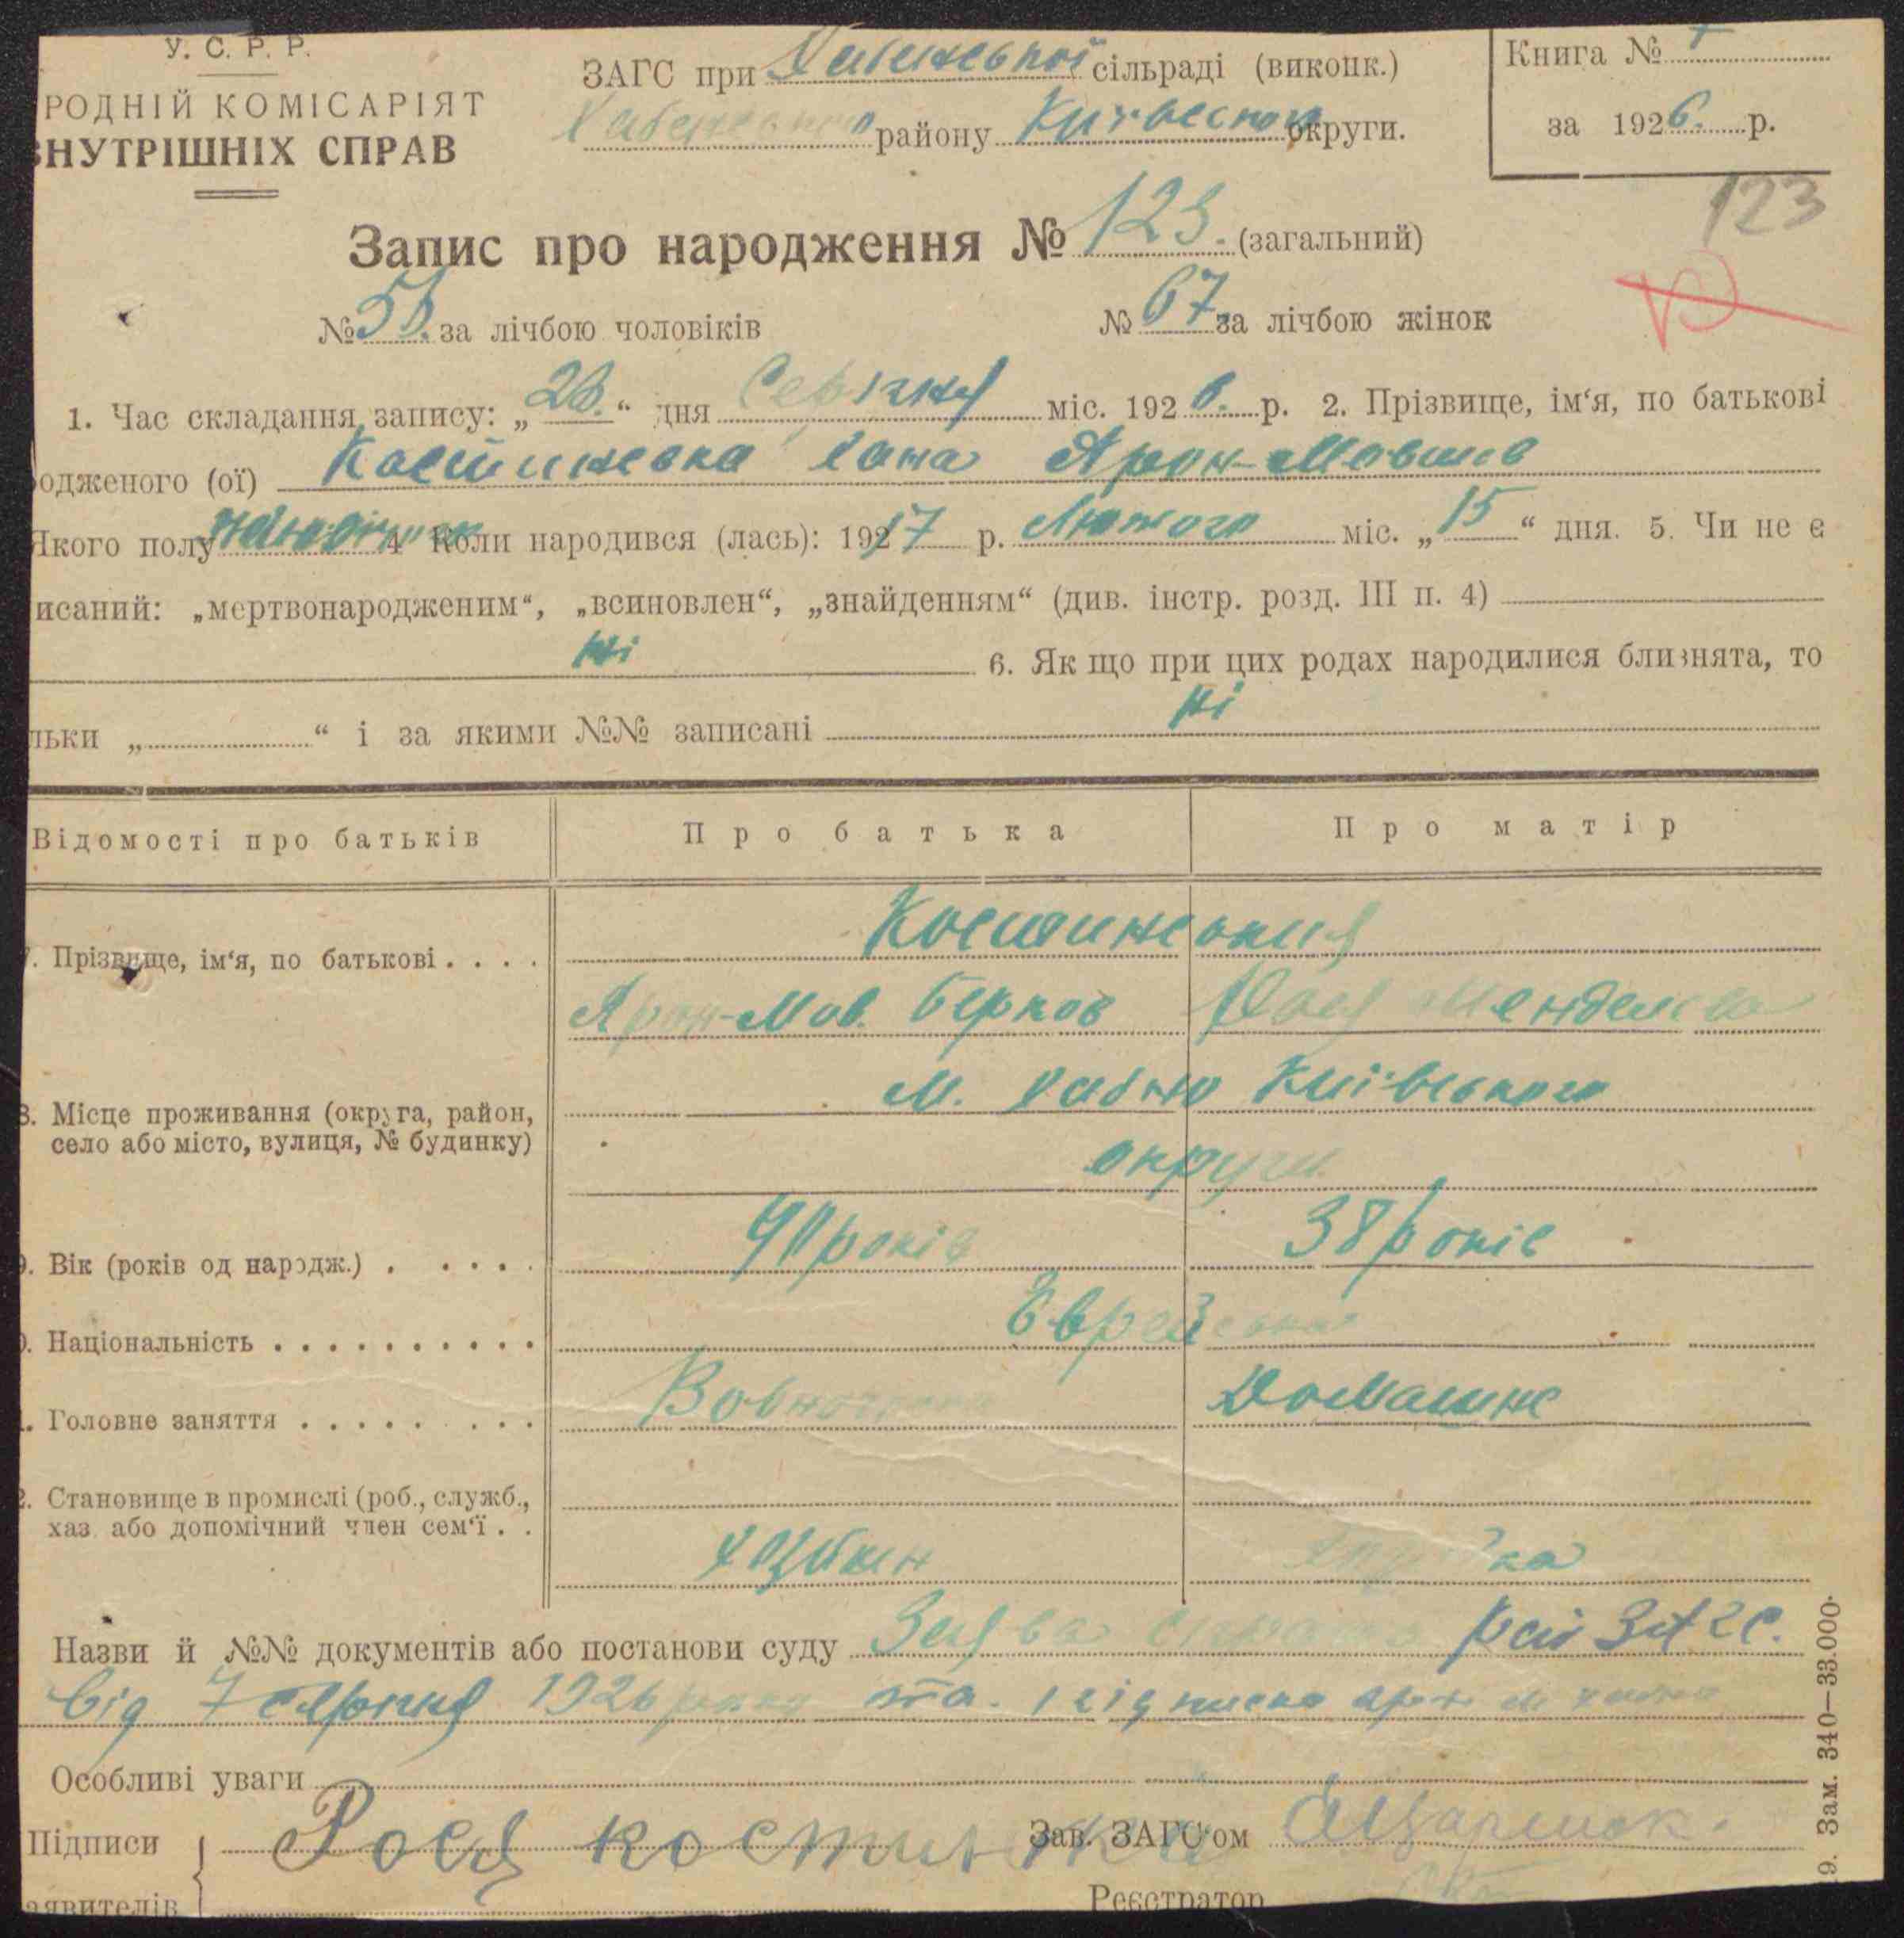 У. С. Р. Р.
РОДНІЙ КОМІСАРІЯТ
ВНУТРІШНІХ СПРАВ
ЗАГС при Хабенської сільраді (виконк.)
Хабенського району Київської округи.
Книга №
за 1926. р.
123
Запис про народження № 123. (загальний)
№ за лічбою чоловіків
№ 67 за лічбою жінок
1. Час складання запису: „28.“ дня Серпня міс. 1926. р. 2. Прізвище, ім‘я, по батькові
одженого (ої) Костинська Хана Арон-Мовшів
Якого полу 4 Коли народився (лась): 1917 р. Лютого міс. „15“ дня. 5. Чи не є
исаний: „мертвонародженим“, „всиновлен“, „знайденням“ (див. інстр. розд. III п. 4)
ні 6. Як що при цих родах народилися близнята, то
льки „ “ і за якими №№ записані ні
Відомості про батьків Про батька Про матір
7. Прізвище, ім‘я, по батькові . . . .
Костинския
Арон-Мов. Берков Менделева
8. Місце проживання (округа, район,
село або місто, вулиця, № будинку)
М. Хабно Київського
округи
9. Вік (років од народж.) . . . . . 40 років 38 років
0. Національність . . . . . . . . . . Еврейська
. Головне заняття . . . . . . . . . Домашне
2. Становище в промислі (роб., служб.,
хаз. або допомічний член сем‘ї . .
Хазяїн
Назви й №№ документів або постанови суду Заява рай ЗАГС.
від 7 серпня 1926 року та підписка
Особливі уваги
Підписи Рося костинска Зав. ЗАГС‘ом
аявителів Реєстратор
9. Зам. 340—33.000.